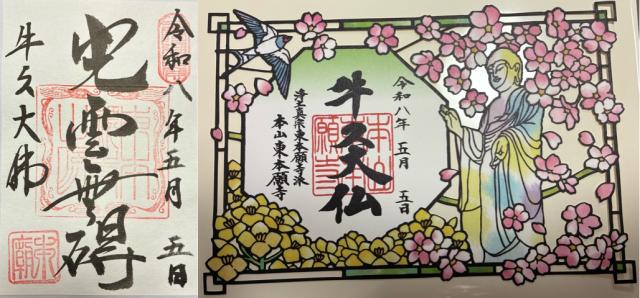 令和八年五月五日
光雲無碍
牛久大佛
令和八年 五月 五日
牛久大仏
浄土真宗東本願寺派
本山東本願寺